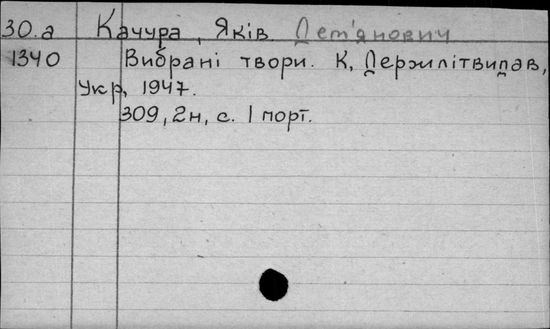 30.а Качура, Яків Дем'янович
1340 Вибрані твори. К, Держлітвидав,
Укр, 1947.
309, 2н, с. 1 порт.